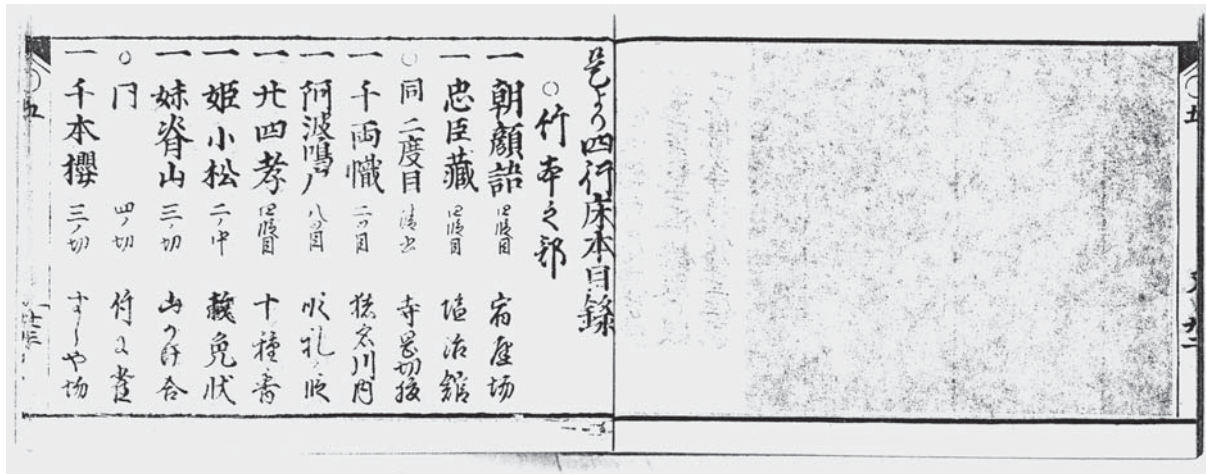 是より四行床本目録
○竹本之部
一 朝顔話 四段目 宿屋場
一 忠臣蔵 四段目 塩冶館
○ 同二度目 清書 寺岡切腹
一 千両幟 二ツ目 猪名川内
一 阿波鳴戸 八ツ目 順礼段
一 廿四孝 四段目 十種香
一 姫小松 二ノ中 赦免状
一 妹脊山 三ノ切 山の掛合
○ 同 四ノ切 竹に雀
一 千本櫻 三ノ切 すしや場
五
五